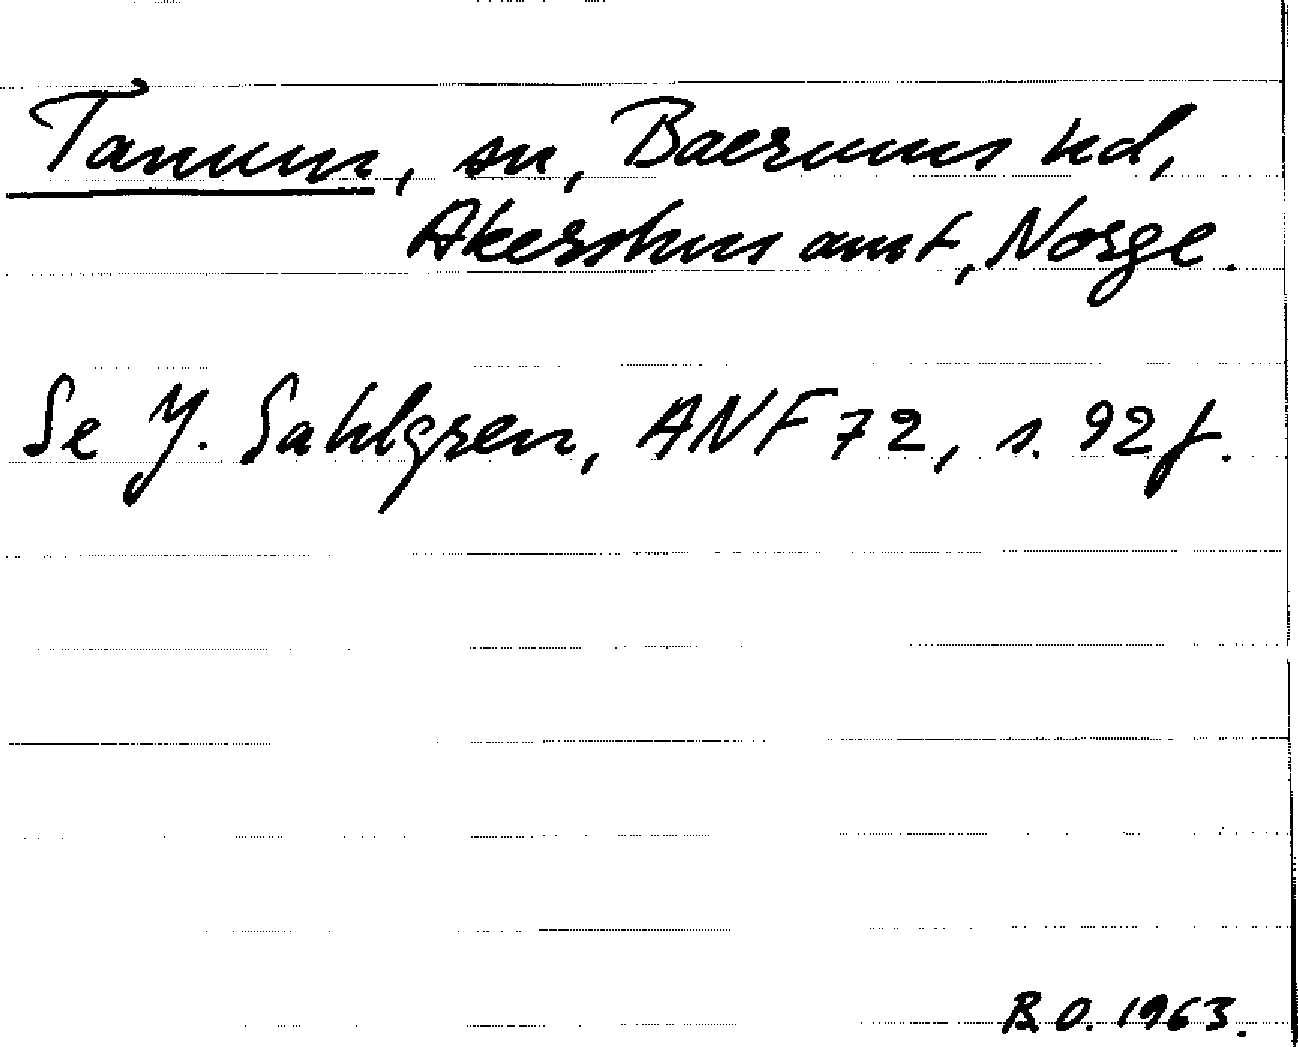 Tanum, sn, Baerums hd,
Akershus amt, Norge.
Se J. Sahlgren, ANF 72, s. 92 f.
B.O. 1963.